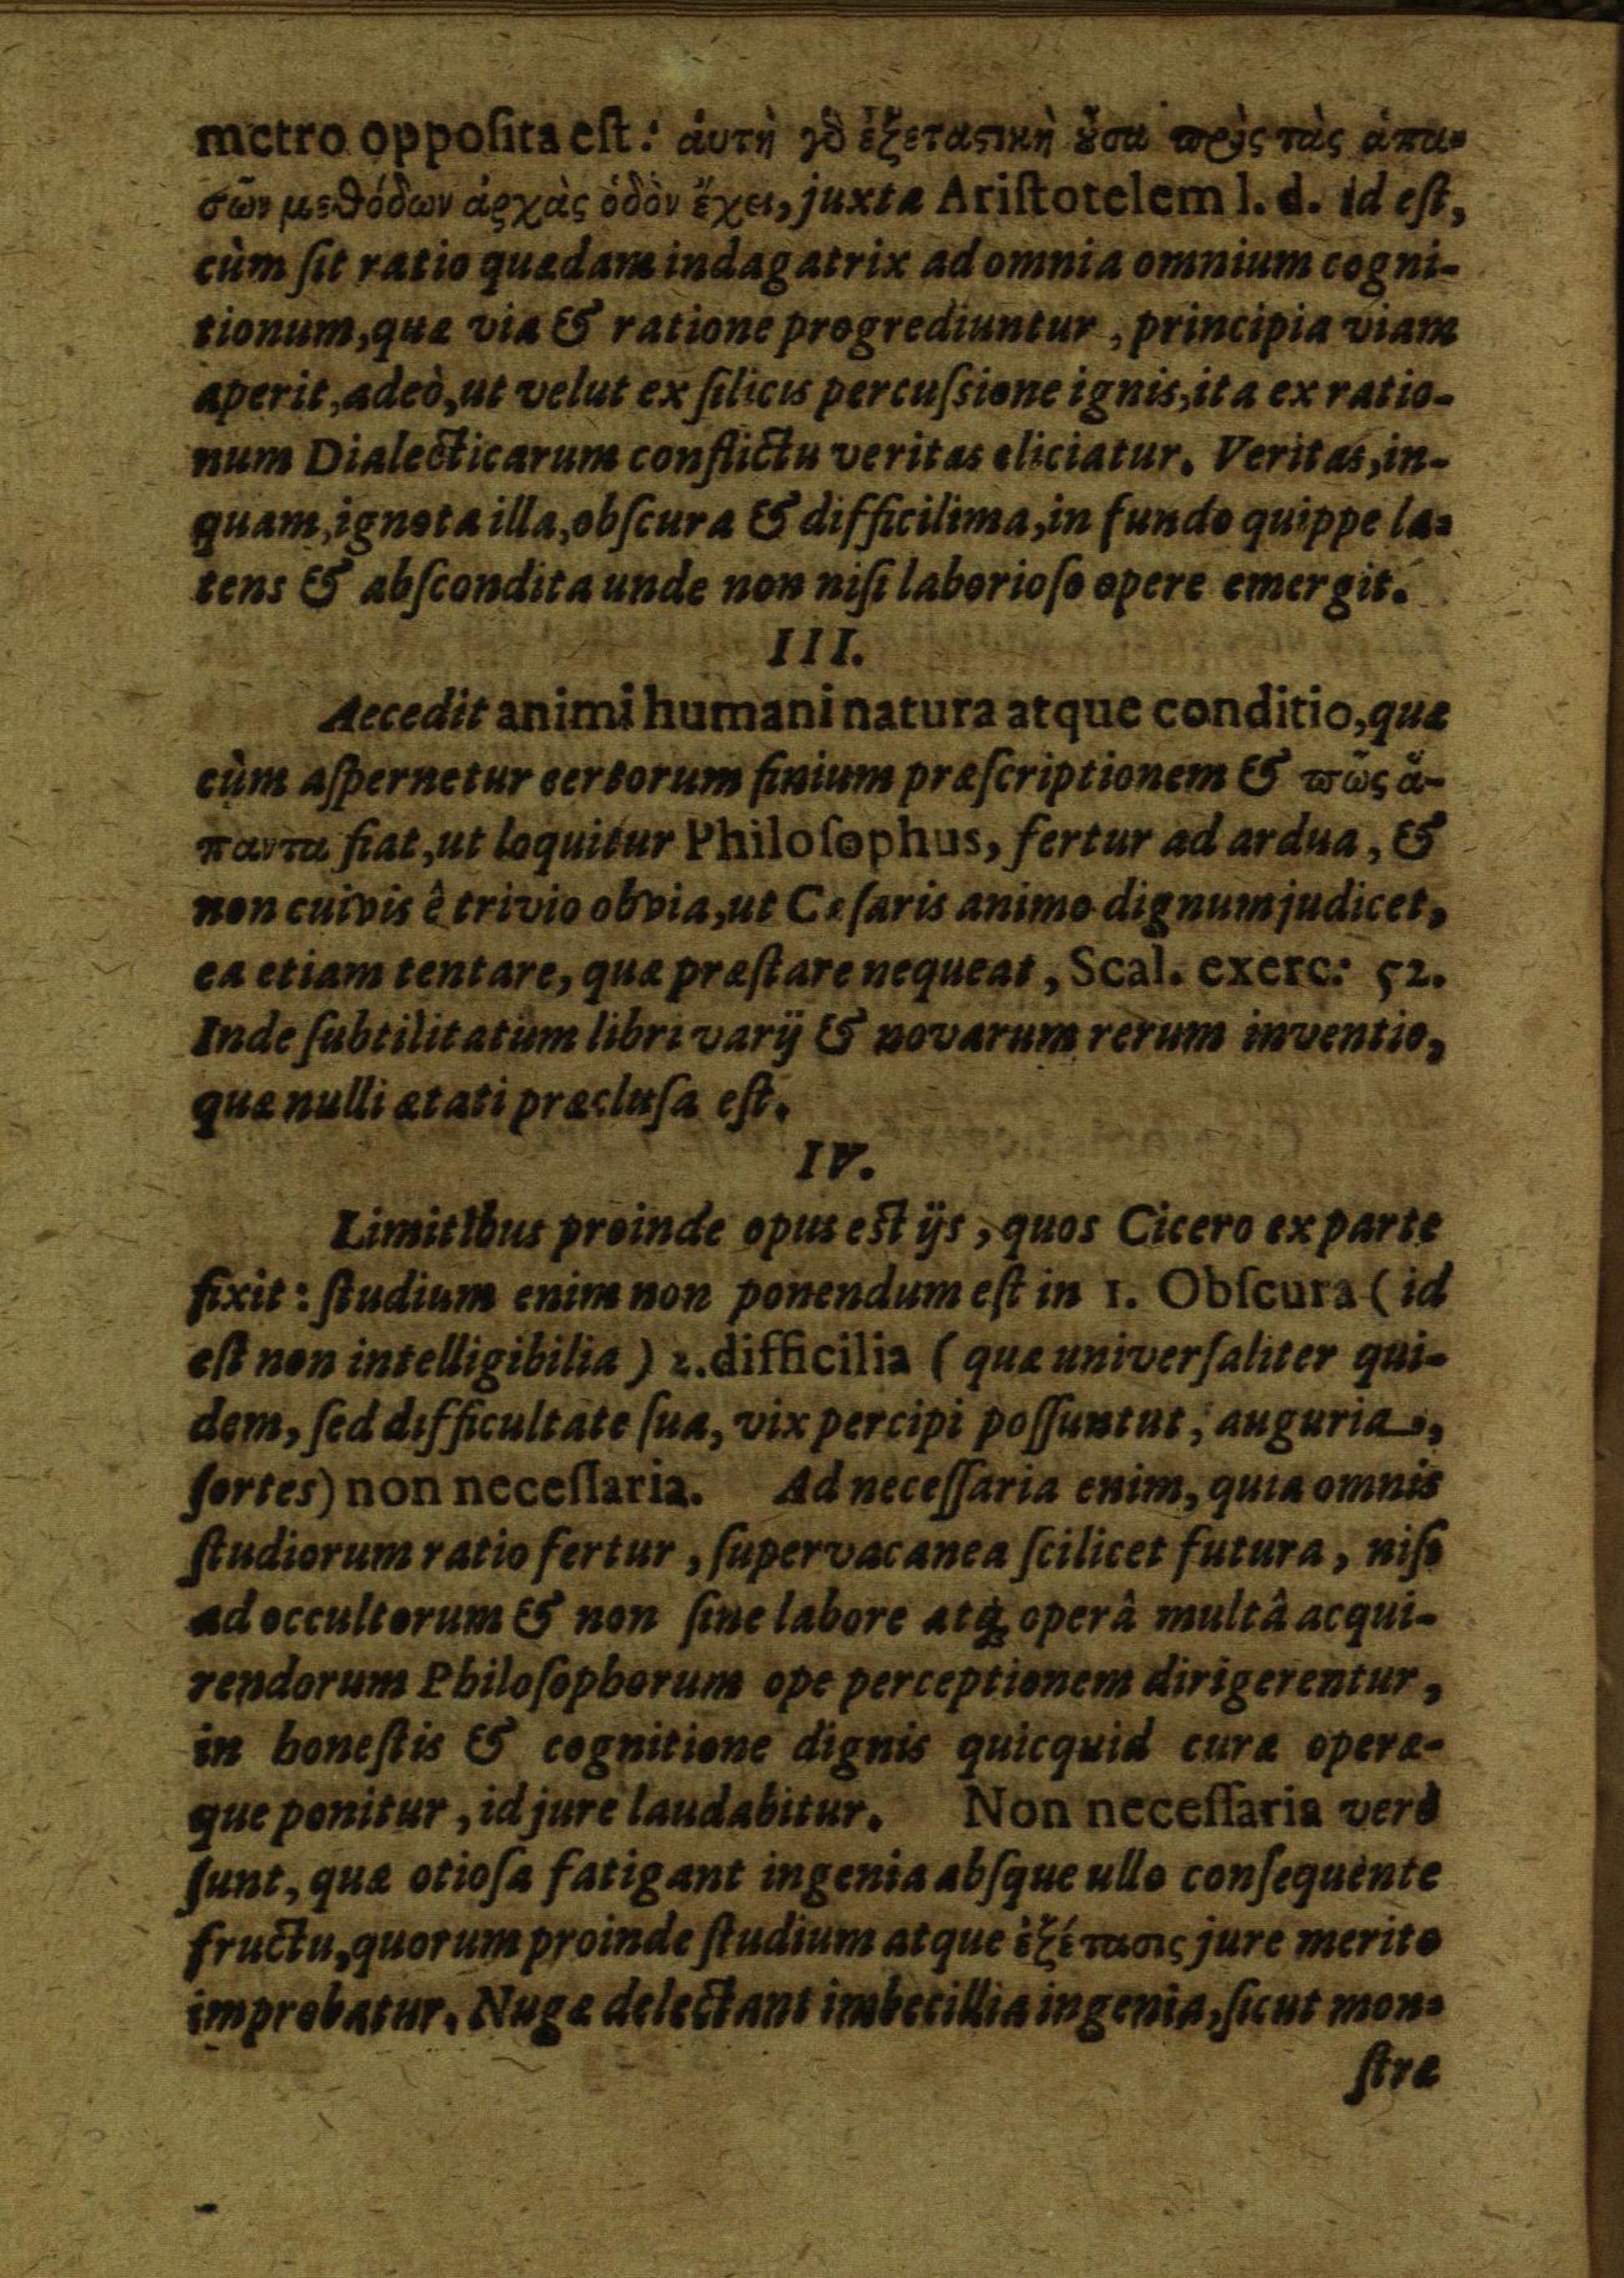 metro opposita est: ἀυτὴ γδ ἐξεταστικὴ ȣ̓σα πρὸς τὰς ἁπα-
σῶν μεθόδων ἀρχὰς ὁδὸν ἔχει, juxta Aristotelem l. d. id est,
cùm sit ratio quædam indagatrix ad omnia omnium cogni-
tionum, quæ via & ratione progrediuntur, principia viam
aperit, adeò, ut velut ex silicis percussione ignis, ita ex ratio-
num Dialecticarum conflictu veritas eliciatur. Veritas, in-
quam, ignota illa, obscura & difficilima, in fundo quippe la-
tens & abscondita unde non nisi laborioso opere emergit.
III.
Accedit animi humani natura atque conditio, quæ
cùm aspernetur certorum finium præscriptionem & πῶς ἅ-
παντα fiat, ut loquitur Philosophus, fertur ad ardua, &
non cuivis ê trivio obvia, ut Cæsaris animo dignum judicet,
ea etiam tentare, quæ præstare nequeat, Scal. exerc: 52.
Inde subtilitatum libri varij & novarum rerum inventio,
quæ nulli ætati præclusa est.
IV.
Limitibus proinde opus est ijs, quos Cicero ex parte
fixit: studium enim non ponendum est in 1. Obscura (id
est non intelligibilia) 2. difficilia (quæ universaliter qui-
dem, sed difficultate sua, vix percipi possuntut, auguria,
sortes) non necessaria. Ad necessaria enim, quia omnis
studiorum ratio fertur, supervacanea scilicet futura, nisi
ad occultorum & non sine labore atq; operâ multâ acqui-
rendorum Philosophorum ope perceptionem dirigerentur,
in honestis & cognitione dignis quicquid curæ operæ-
que ponitur, id jure laudabitur. Non necessaria verò
sunt, quæ otiosa fatigant ingenia absque ullo consequente
fructu, quorum proinde studium atque ἐξέτασις jure merito
improbatur. Nugæ delectant imbecillia ingenia, sicut mon-
stra